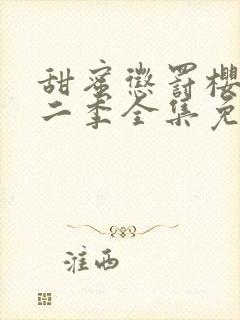 甜蜜惩罚樱
二季全集免
淮西